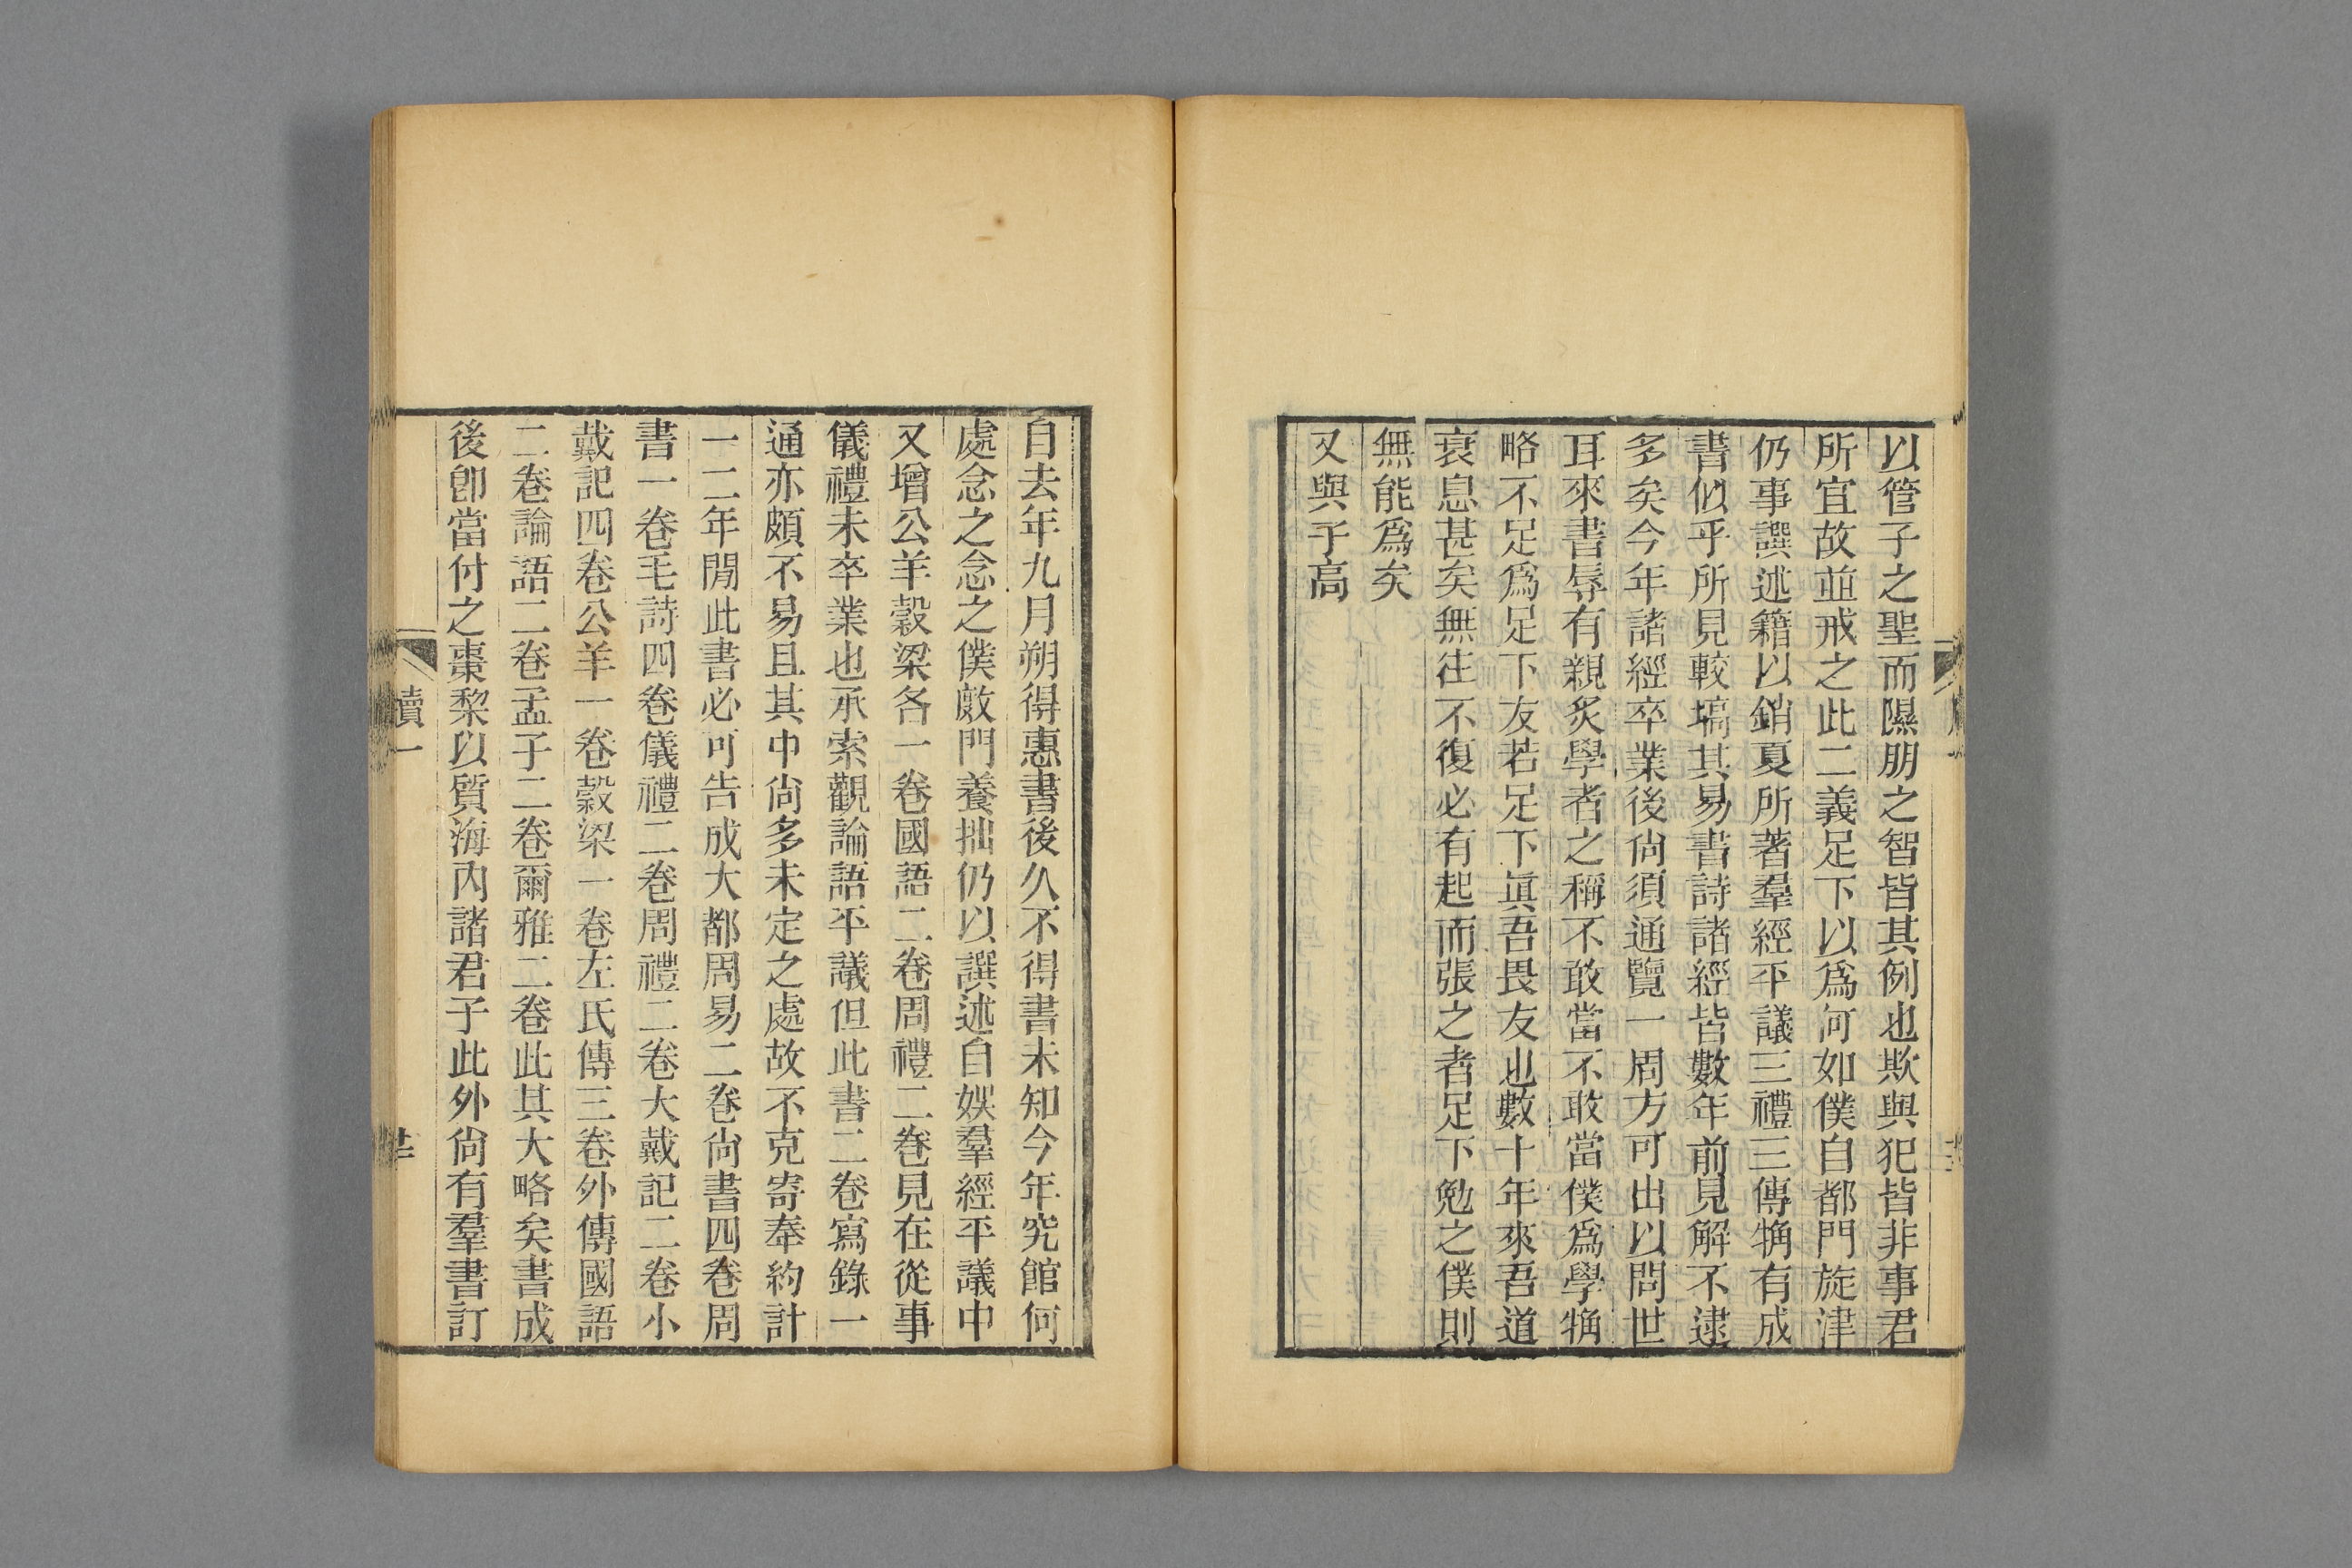 以管子之聖而隰朋之智皆其例也欺與犯皆非事君
所宜故並戒之此二義足下以爲何如僕自都門旋津
仍事譔述籍以銷夏所著羣經平議三禮三傳觕有成
書似乎所見較塙其易書詩諸經皆數年前見解不逮
多矣今年諸經卒業後尙須通覽一周方可出以問世
耳來書辱有親炙學者之稱不敢當不敢當僕爲學觕
略不足爲足下友若足下眞吾畏友也數十年來吾道
衰息甚矣無往不復必有起而張之者足下勉之僕則
無能爲矣
又與子高
自去年九月朔得惠書後久不得書未知今年究館何
處念之念之僕敝門養拙仍以譔述自娛羣經平議中
又增公羊穀梁各一卷國語二卷周禮二卷見在從事
儀禮未卒業也承索觀論語平議但此書二卷寫錄一
通亦頗不易且其中尙多未定之處故不克寄奉約計
一二年閒此書必可告成大都周易二卷尙書四卷周
書一卷毛詩四卷儀禮二卷周禮二卷大戴記二卷小
戴記四卷公羊一卷穀梁一卷左氏傳三卷外傳國語
二卷論語二卷孟子二卷爾雅二卷此其大略矣書成
後卽當付之棗棃以質海內諸君子此外尙有羣書訂
續一